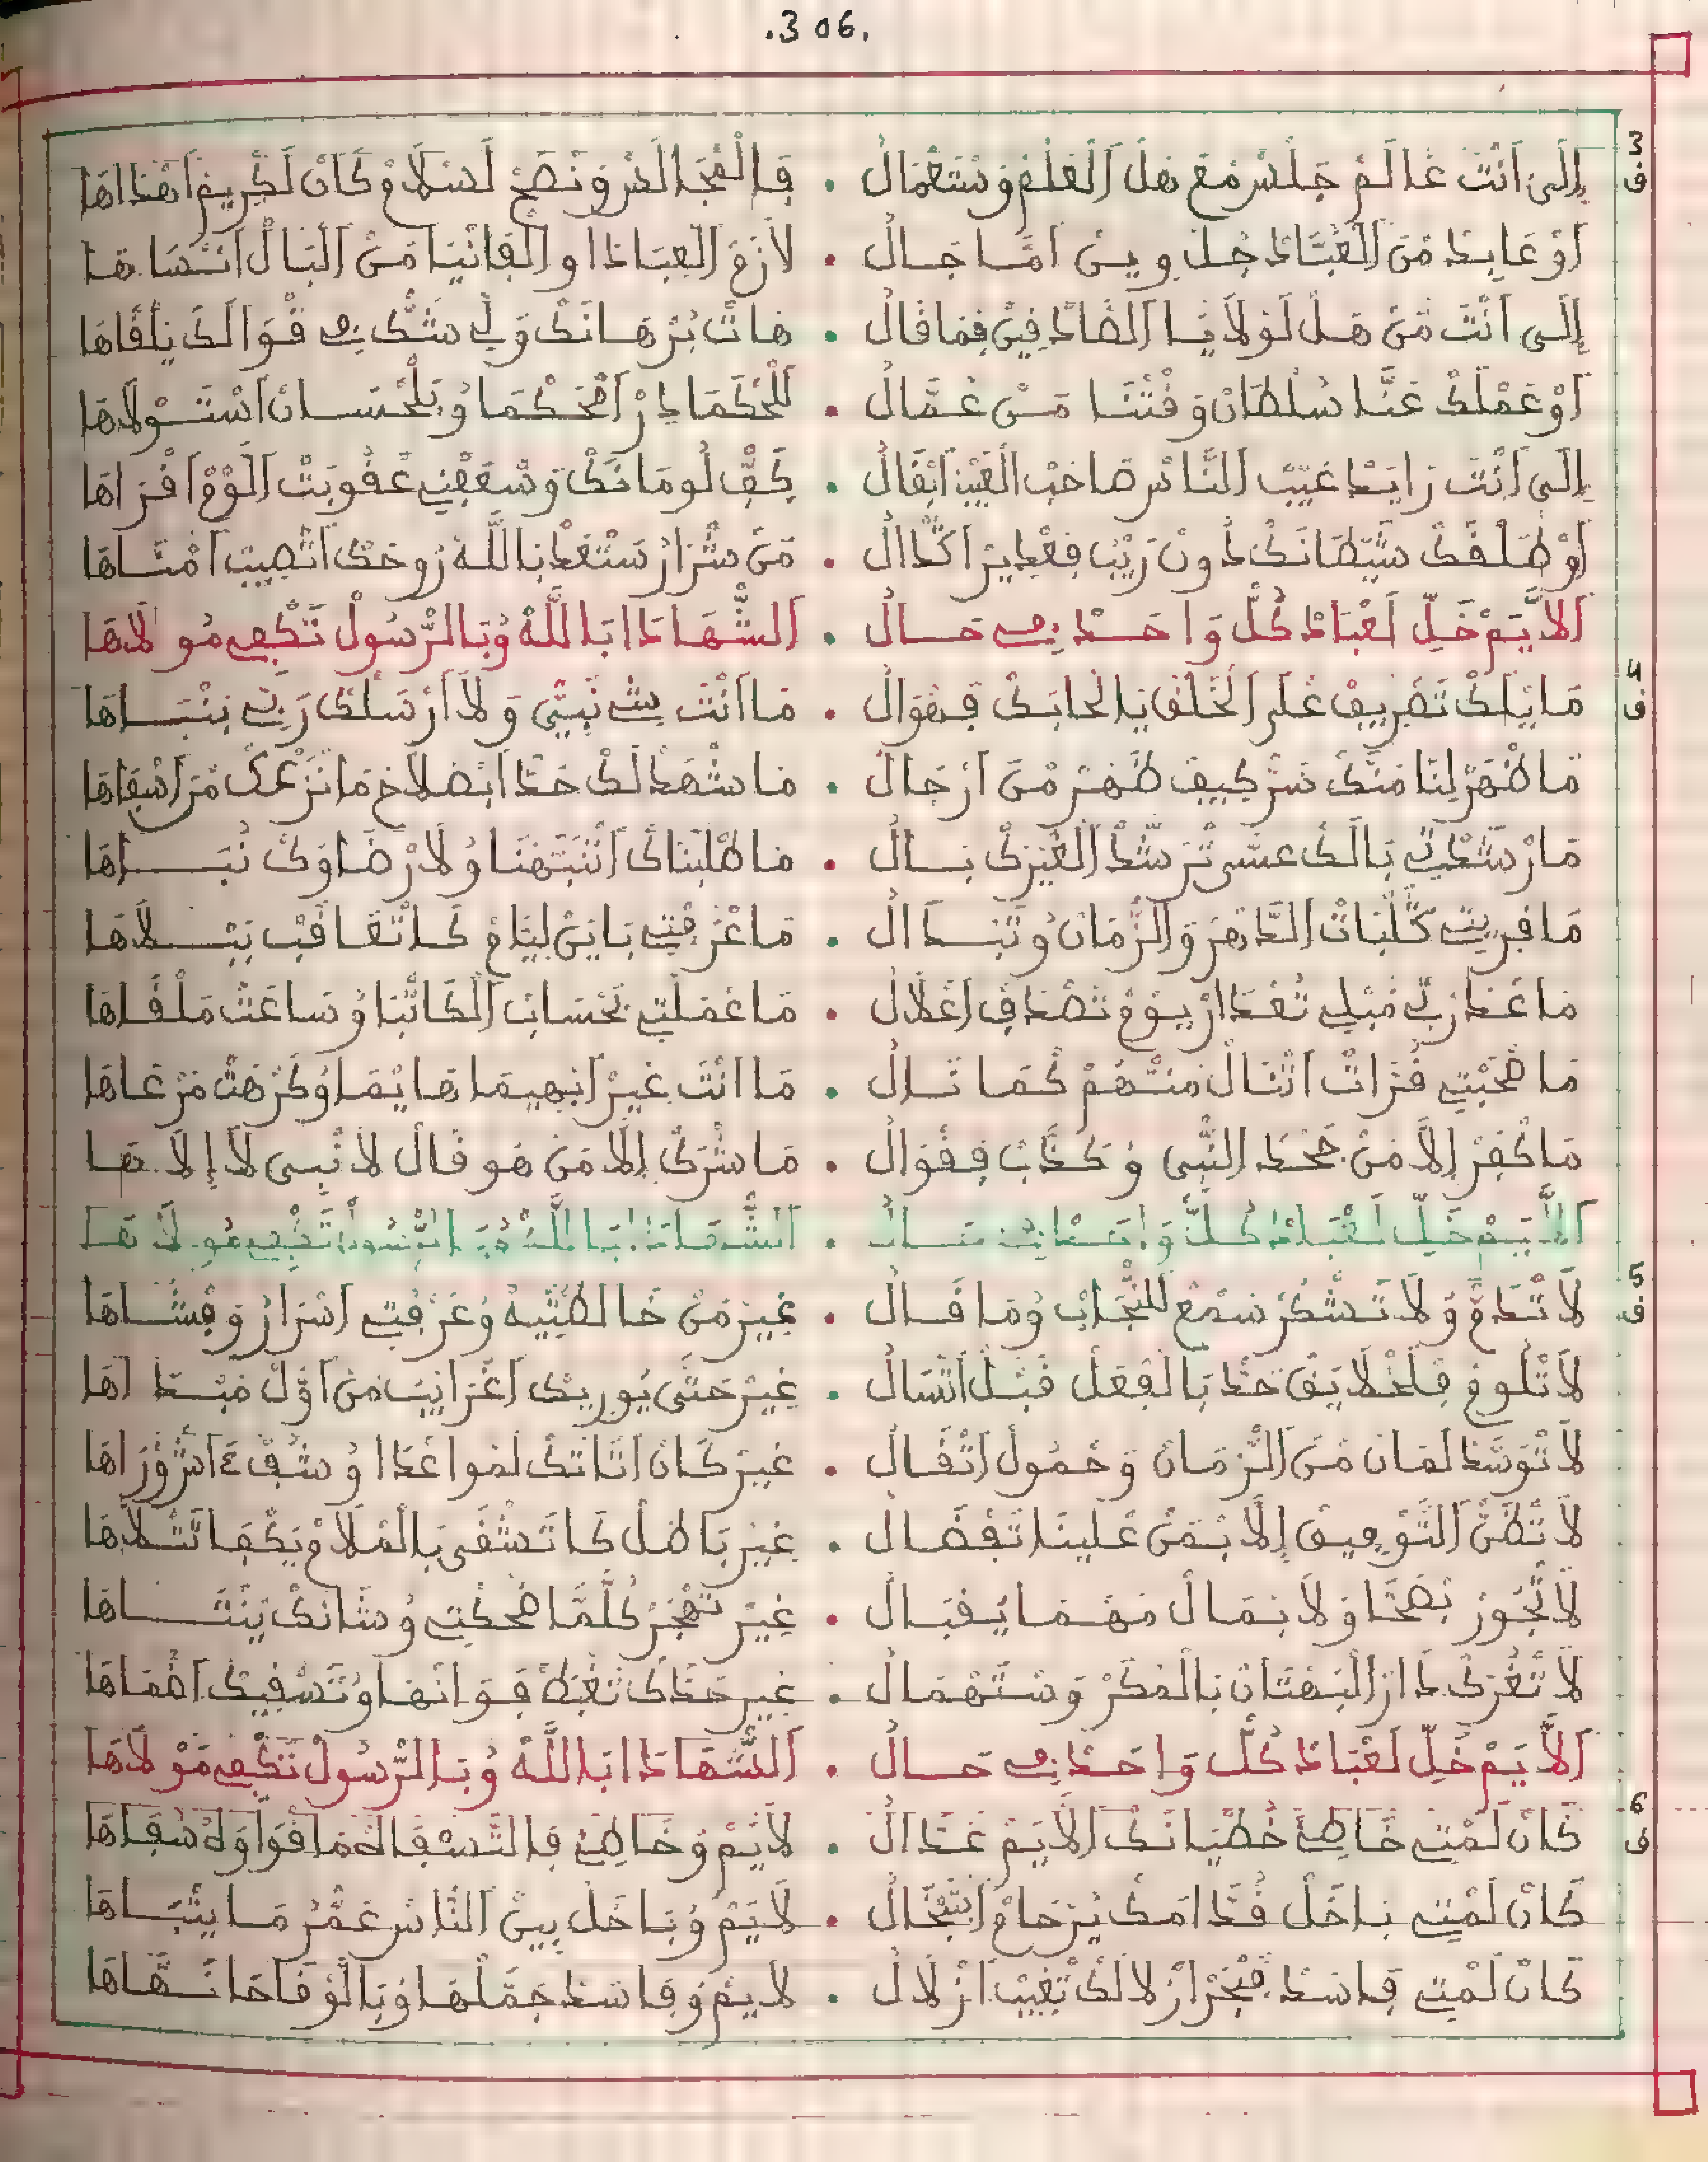 .306.
3 ف إِلَى أَنْتَ عَالَمْ جَلَّسْ مْعَ هَلْ الْعَلْمْ وَسْتَعْمَالْ • فَالْمْجَالَسْ وَنْصَحْ لَسْلَامْ وْكَانْ لَكْرِيمْ اَهْدَاهَا
اَوْ عَابِدْ مْنَ الْعُبَّادْ جُلْ وِينْ اَمَّا جَالْ • لَازَمْ الْعِبَادَا وَالْفَانْيَا مَنْ الْبَالْ اَنْسَاهَا
إِلَى أَنْتَ مْنَ هَلْ لَوْلَايَا الضَّادْ فِينْ فِمَا قَالْ • هَاتْ بُرْهَانَكْ وَلِي شَكْ فِي قْوَالَكْ يَلْقَاهَا
اَوْ عَمْلَكْ عَنَّا سُلْطَانْ وَقْتْنَا مَنْ عُمَّالْ • لَلْحُكَمَا دِرْ اَمْحَكْمَا وُبَلْحْسَانْ اَسْتَوْلَاهَا
إِلَى أَنْتَ زَايَدْ عَيْبْ النَّاسْ صَاحَبْ الْعَيْبْ اَثْقَالْ • كَفّْ لُومَانَكْ وَسْعَفْنِي عْقُوبَتْ اللَّوْمْ اَقْرَاهَا
اَوْ صَلْفَكْ شَيْطَانَكْ دُونْ رَيْبْ فِعْدِيرْ اَكْدَالْ • مَنْ شْرَارُ سْتَعَدْ بَاللَّهْ رُوحَكْ اَتْصِيبْ اَمْنَاهَا
اَلَا يَمْ خَلِّ لَعْبَادْ كُلّْ وَاحَدْ فِي حَالْ • الشّْهَادَا بَاللَّهْ وُبَالرَّسُولْ تَكْفِي مُولَاهَا
4 ف مَا يْلَكْ تَصْرِيفْ عْلَى الْخَلْقْ يَا لْحَايَكْ فِهْوَالْ • مَا اَنْتَ شِي نْبِيّْ وَلَا اَرْسَلَكْ رَبِّي بَنْبَاهَا
مَا ظْهَرْ لِنَا مَنَّكْ سَرّْ كِيفْ ظْهَرْ مْنَ اَرْجَالْ • مَا شْهَدْ لَكْ حَدْ اَبْصْلَاحْ مَا نَزْعَكْ مَنْ اَشْقَاهَا
مَا رْشَدْتِي بَالَكْ عَسَّى تْرَشَّدْ الْغِيرَكْ بَالْ • مَا طْلَبْنَاكْ اَتْنَبَّهْنَا وُلَا رْضَاوَكْ نُبَاهَا
مَا قْرِيتِي كَتْبَاتْ الدَّهَرْ وَالزّْمَانْ وُتَبْدَالْ • مَا عْرَفْتِي بَايَنْ لِيَّامْ كَاتْعَاقَبْ بَبْلَاهَا
مَا عْدَرْ لِي قَبْلِي تْعْدَارْ يَوْمْ تَصْدَفْ اَعْلَالْ • مَا عْمَلْتِي بَحْسَابْ الْكَاتْبَا وُسَاعَتْ مَلْقَاهَا
مَا صْحَبْتِي قْرَاتْ اَتْنَالْ مَنْهُمْ كْمَا نَالْ • مَا اَنْتَ غِيرْ اَبْهِيمَا هَايْمَا وُكَرْهَتْ مَرْعَاهَا
مَا كْفَرْ إِلَّا مَنْ جْحَدْ النّْبِي وُكَذَّبْ فِقْوَالْ • مَا شْرَكْ إِلَّا مَنْ هُو قَالْ لَا نْبِي لَا إِلَاهَا
اَلَا يَمْ خَلِّ لَعْبَادْ كُلّْ وَاحَدْ فِي حَالْ • الشّْهَادَا بَاللَّهْ وُبَالرَّسُولْ تَكْفِي مُولَاهَا
5 ف لَا تْدَمْ وَلَا تَشْكُرْ سْمَعْ لَلنّْجَابْ وُمَا قَالْ • غِيرْ مَنْ خَالَطْتِيهْ وُعَرْفْتِي اَسْرَارُ وَفْشَاهَا
لَا تْلُومْ فِلَخْلَايَقْ حَدْ بَالْفِعَلْ قْبَلْ اَتْسَالْ • غِيرْ حَتَّى يُورِيكْ اَغْرَايَبْ مَنْ اَوَّلْ مَبْدَاهَا
لَا تْوَسَّدْ لَمَانْ مْنَ الزّْمَانْ وَحْمُولْ اَثْقَالْ • غِيرْ كَانْ اَتَاتَكْ لَمْوَاعْدَا وُشُفْ عَ اَشْرُورَاهَا
لَا تْظَنّْ التَّوْفِيقْ إِلَّا بْمَنْ عْلِينَا تَفْضَالْ • غِيرْ بَاطَلْ كَاتَشْقَى بَالْمْلَامْ وَيَكْفَا تَتْلَاهَا
لَا تْجُوزْ بْصَحَّا وَلَا بْمَالْ مَهْمَا يَقْبَالْ • غِيرْ تَهْجَرْ كُلَّمَا ضْحَكْتِي وُشَانَكْ يَنْسَاهَا
لَا تْغُرَّكْ دَارْ الْبَهْتَانْ بَالْمْكَرْ وَسْتَهْمَالْ • غِيرْ حَدَّاكْ تَغْبَطْ فَوَانْهَا وُتَسْقِيكْ اَظْمَاهَا
اَلَا يَمْ خَلِّ لَعْبَادْ كُلّْ وَاحَدْ فِي حَالْ • الشّْهَادَا بَاللَّهْ وُبَالرَّسُولْ تَكْفِي مَوْلَاهَا
6 ف كَانْ لَمْتِي خَاطِي خْطِيَانَكْ اَلَا يَمْ عَدَّالْ • لَا يَمْ وُخَاطِي فَالتَّسْقَالَا مَا قْوَاوَلْ شْقَاهَا
كَانْ لَمْتِي بَاخَلْ قُدَّامَكْ يَزْحَامْ اَبْخَّالْ • لَا يَمْ وُبَاخَلْ بِينْ النَّاسْ عَمّْرُ مَا يَنْبَاهَا
كَانْ لَمْتِي فَاسَدْ فْجَرْ اَزْلَالَكْ تْغِيبْ اَزْلَالْ • لَا يَمْ وُفَاسَدْ جَمَّلْهَا وُبَالْوْقَاحَا نَهَّاهَا